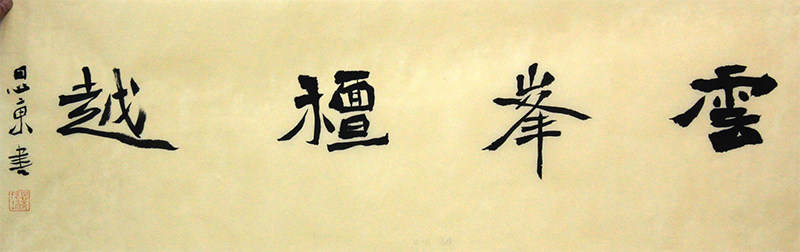 雲峯檀越
思東書